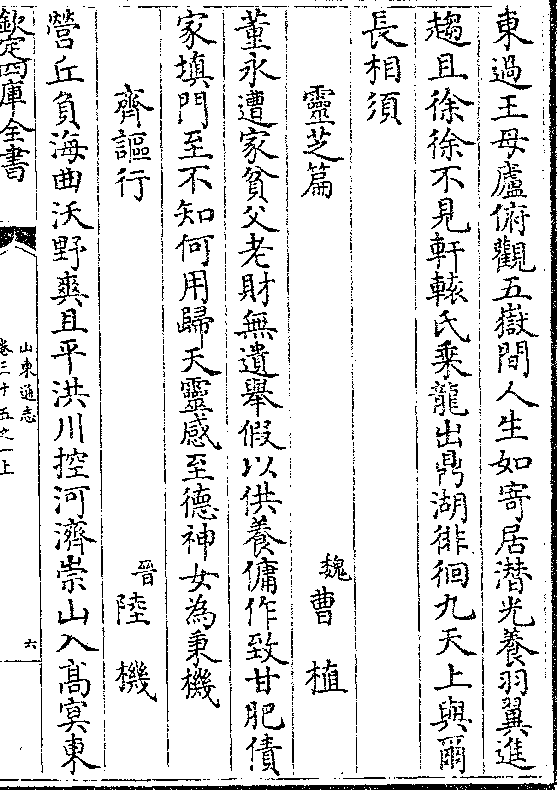 東過王母廬俯觀五嶽間人生如寄居潛光養羽翼進
趨且徐徐不見軒轅氏乘龍出鼎湖徘徊九天上與爾
長相須
靈芝篇 魏 曹植
董永遭家貧父老財無遺舉假以供養傭作致甘肥債
家填門至不知何用歸天靈感至德神女為秉機
齊謳行 晉 陸機
營丘負海曲沃野爽且平洪川控河濟崇山入高冥東
欽定四庫全書
山東通志
卷三十五之一上
六